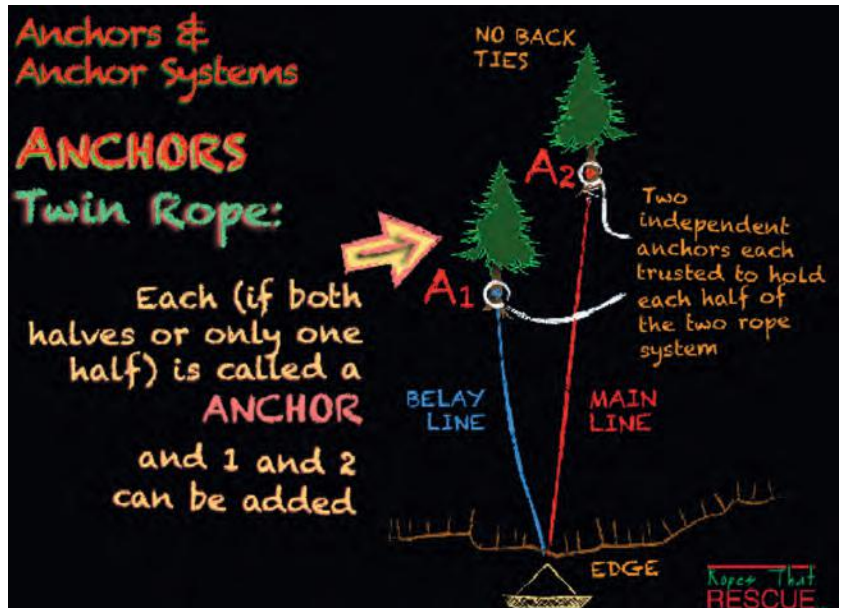 Anchors &
Anchor Systems
ANCHORS
Twin Rope:
Each (if both
halves or only one
half) is called a
ANCHOR
and 1 and 2
can be added
NO BACK
TIES
A2
A1
Two
independent
anchors each
trusted to hold
each half of
the two rope
system
BELAY
LINE
MAIN
LINE
EDGE
Ropes That
RESCUE